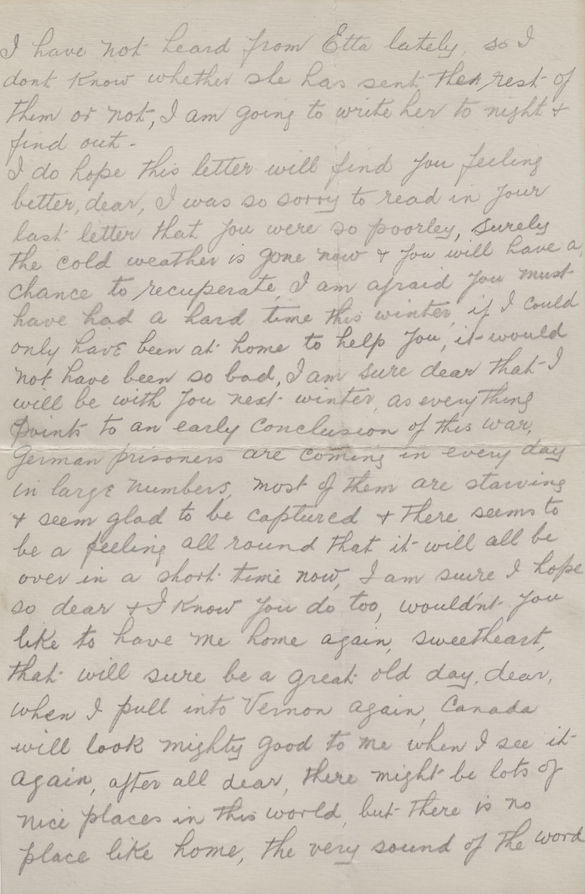 I have not heard from Etta lately, so I
dont know whether she has sent the rest of
them or not, I am going to write her to night +
find out.
I do hope this letter will find you feeling
better, dear, I was so sorry to read in your
last letter that you were so poorley, surely
the cold weather is gone now + you will have a
chance to recuperate, I am afraid you must
have had a hard time this winter, if I could
only have been at home to help you, it would
not have been so bad, I am sure dear that I
will be with you next winter, as everything
points to an early conclusion of this war,
German prisoners are coming in every day
in large numbers, most of them are starving
+ seem glad to be captured + there seems to
be a feeling all round that it will all be
over in a short time now, I am sure I hope
so dear + I know you do too, wouldn't you
like to have me home again, sweetheart,
that will sure be a great old day, dear,
when I pull into Vernon again, Canada
will look mighty good to me when I see it
again, after all dear, there might be lots of
nice places in this world, but there is no
place like home, the very sound of the word